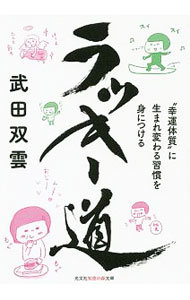 ラッキー道
武田双雲
“幸運体質”に
生まれ変わる習慣を
身につける
スイ
スイ
光文社知恵の森文庫